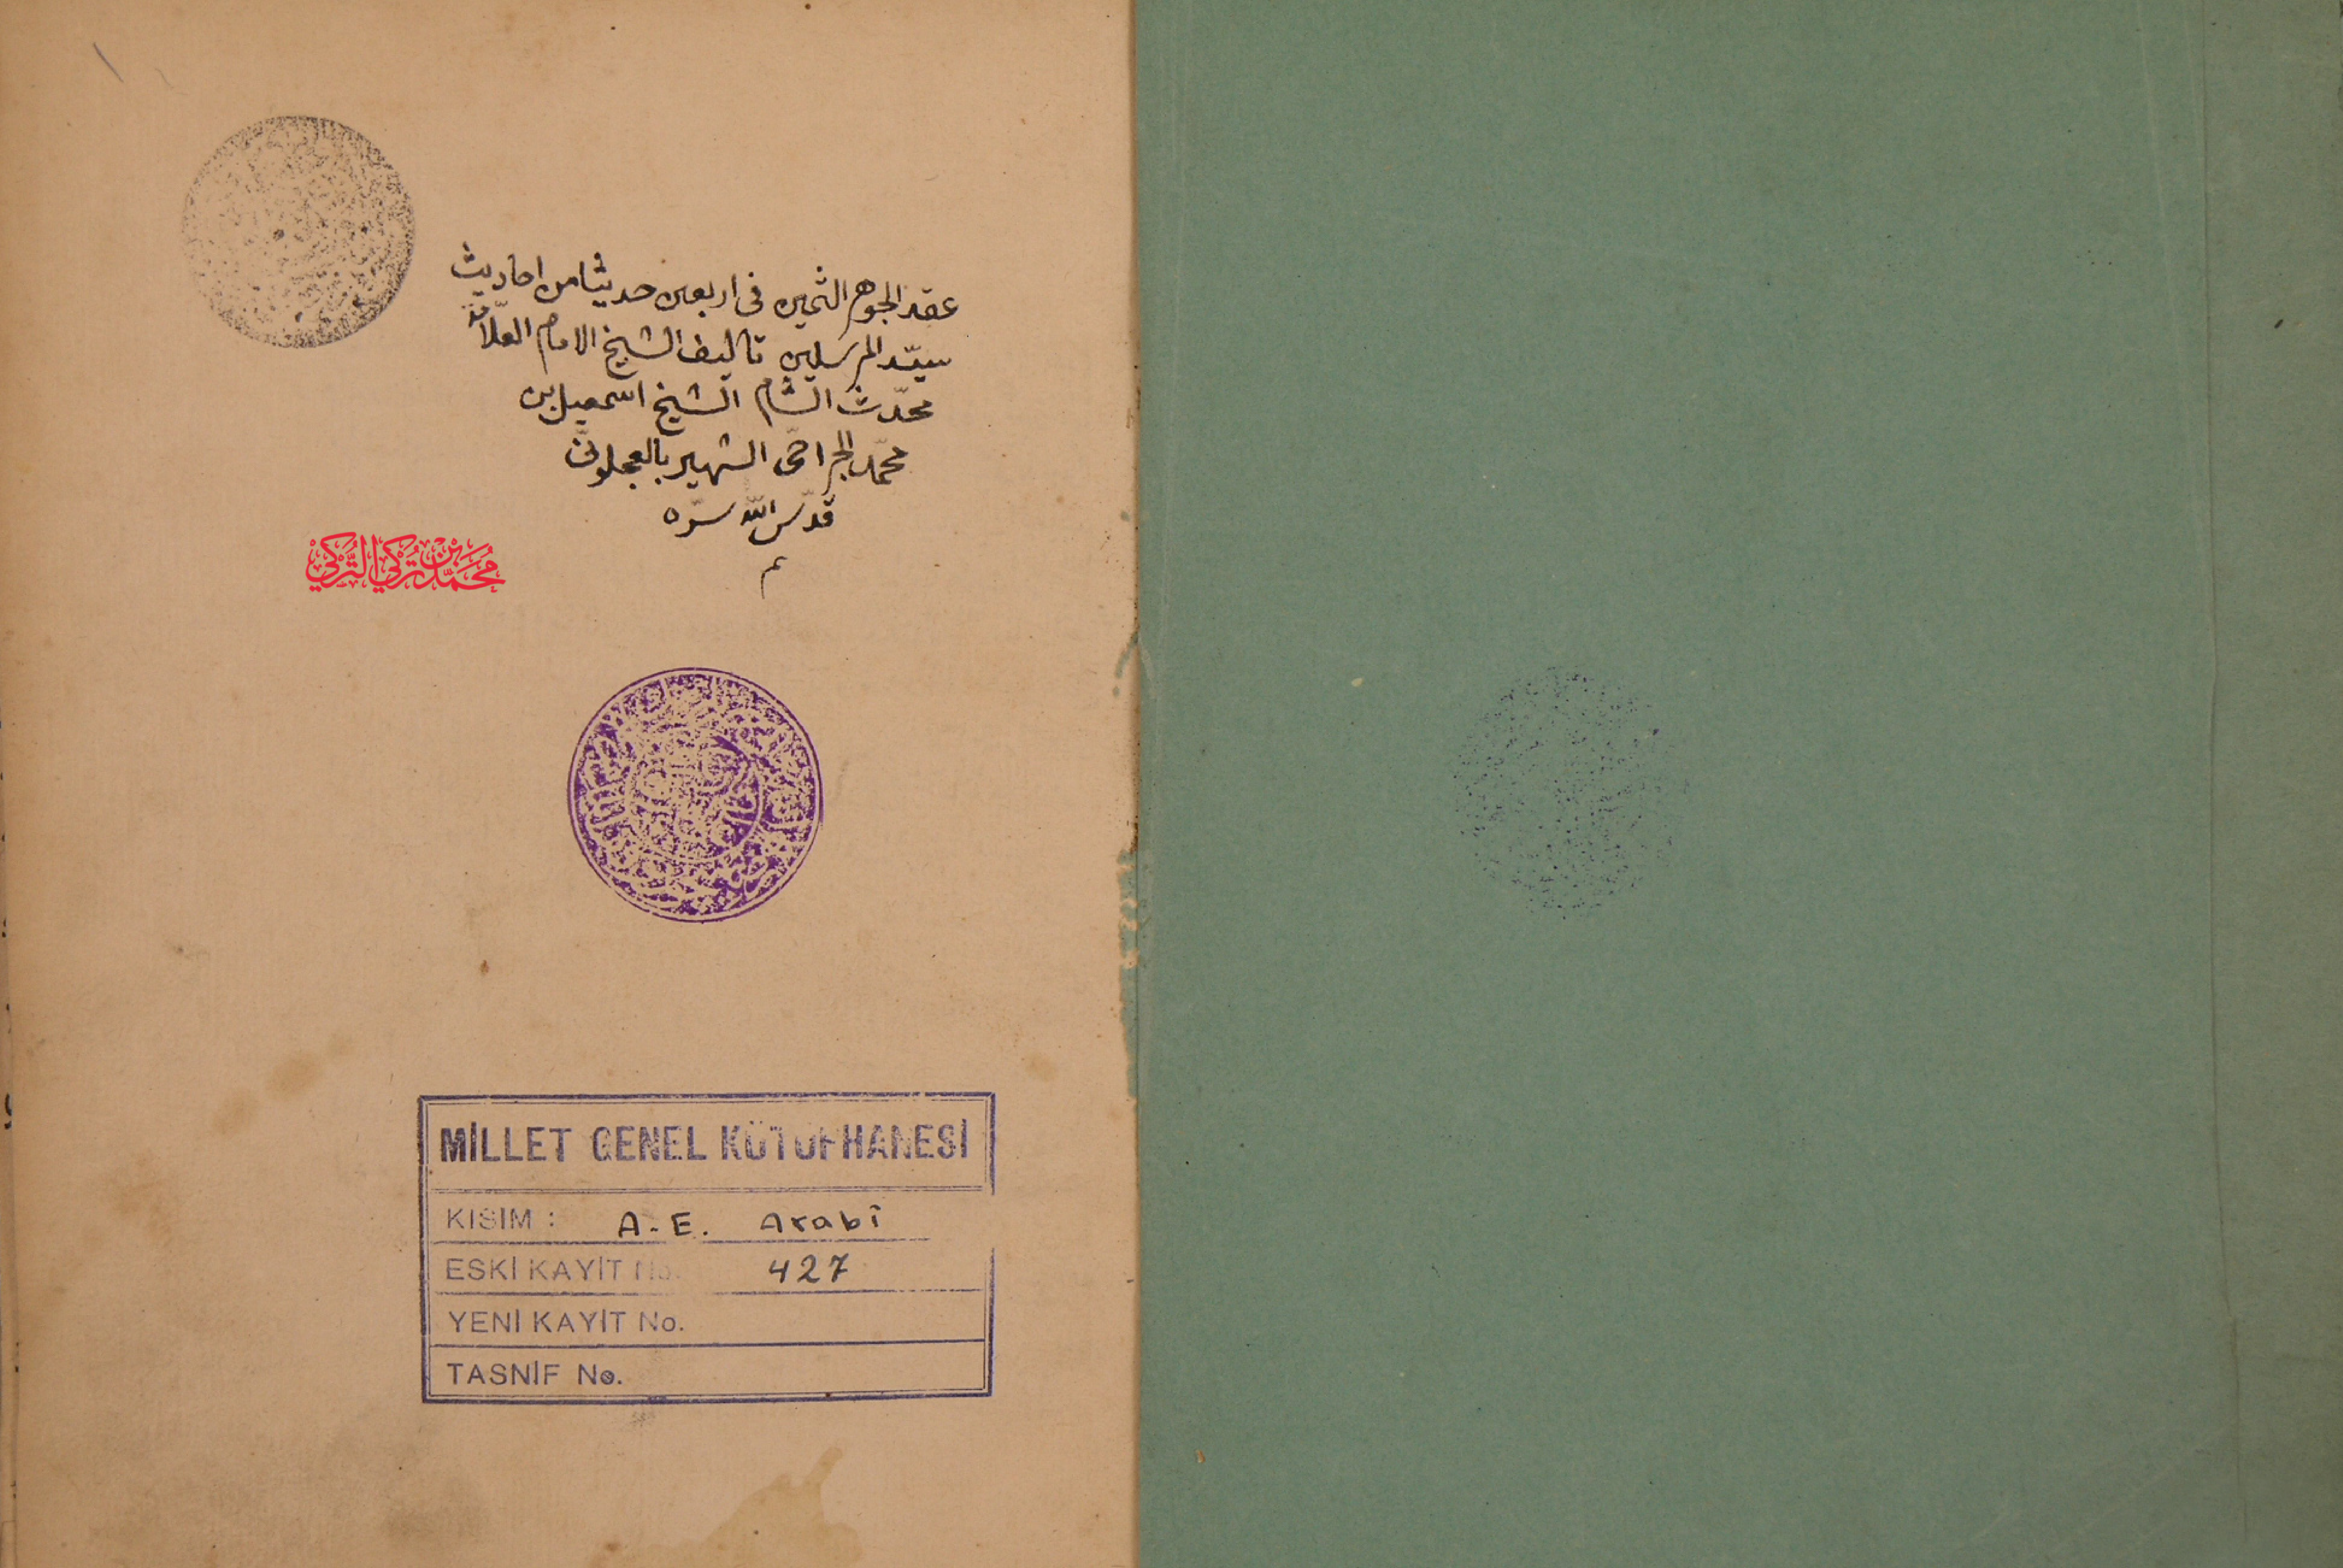 عقد الجوهر الثمين فى اربعين حديثا من احاديث
سيّد المرسلين تاليف الشيخ الامام العلّامة
محدّث الشام الشيخ اسمعيل بن
محمّد الجراحى الشهير بالعجلونى
قدّس اللّه سرّه
م
مُحَمَّدْ بْنْ تُرْكِي التُّرْكِيْ
MİLLET GENEL KÜTÜPHANESİ
KISIM : A-E. Arabî
ESKİ KAYİT No. 427
YENİ KAYİT No.
TASNİF No.